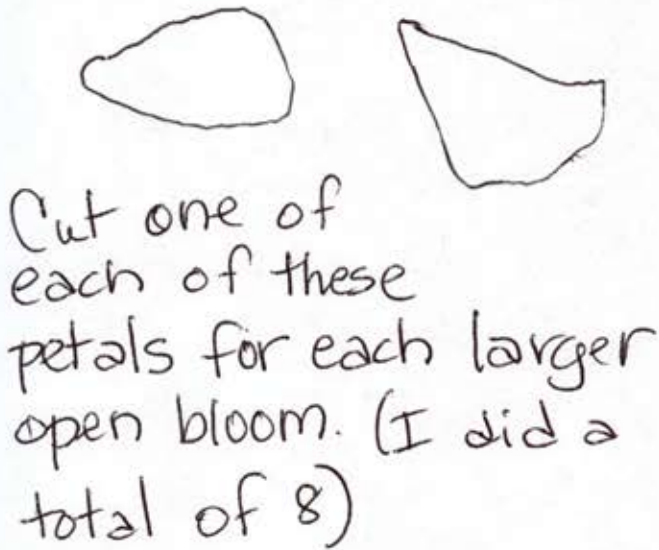 Cut one of
each of these
petals for each larger
open bloom. (I did a
total of 8)